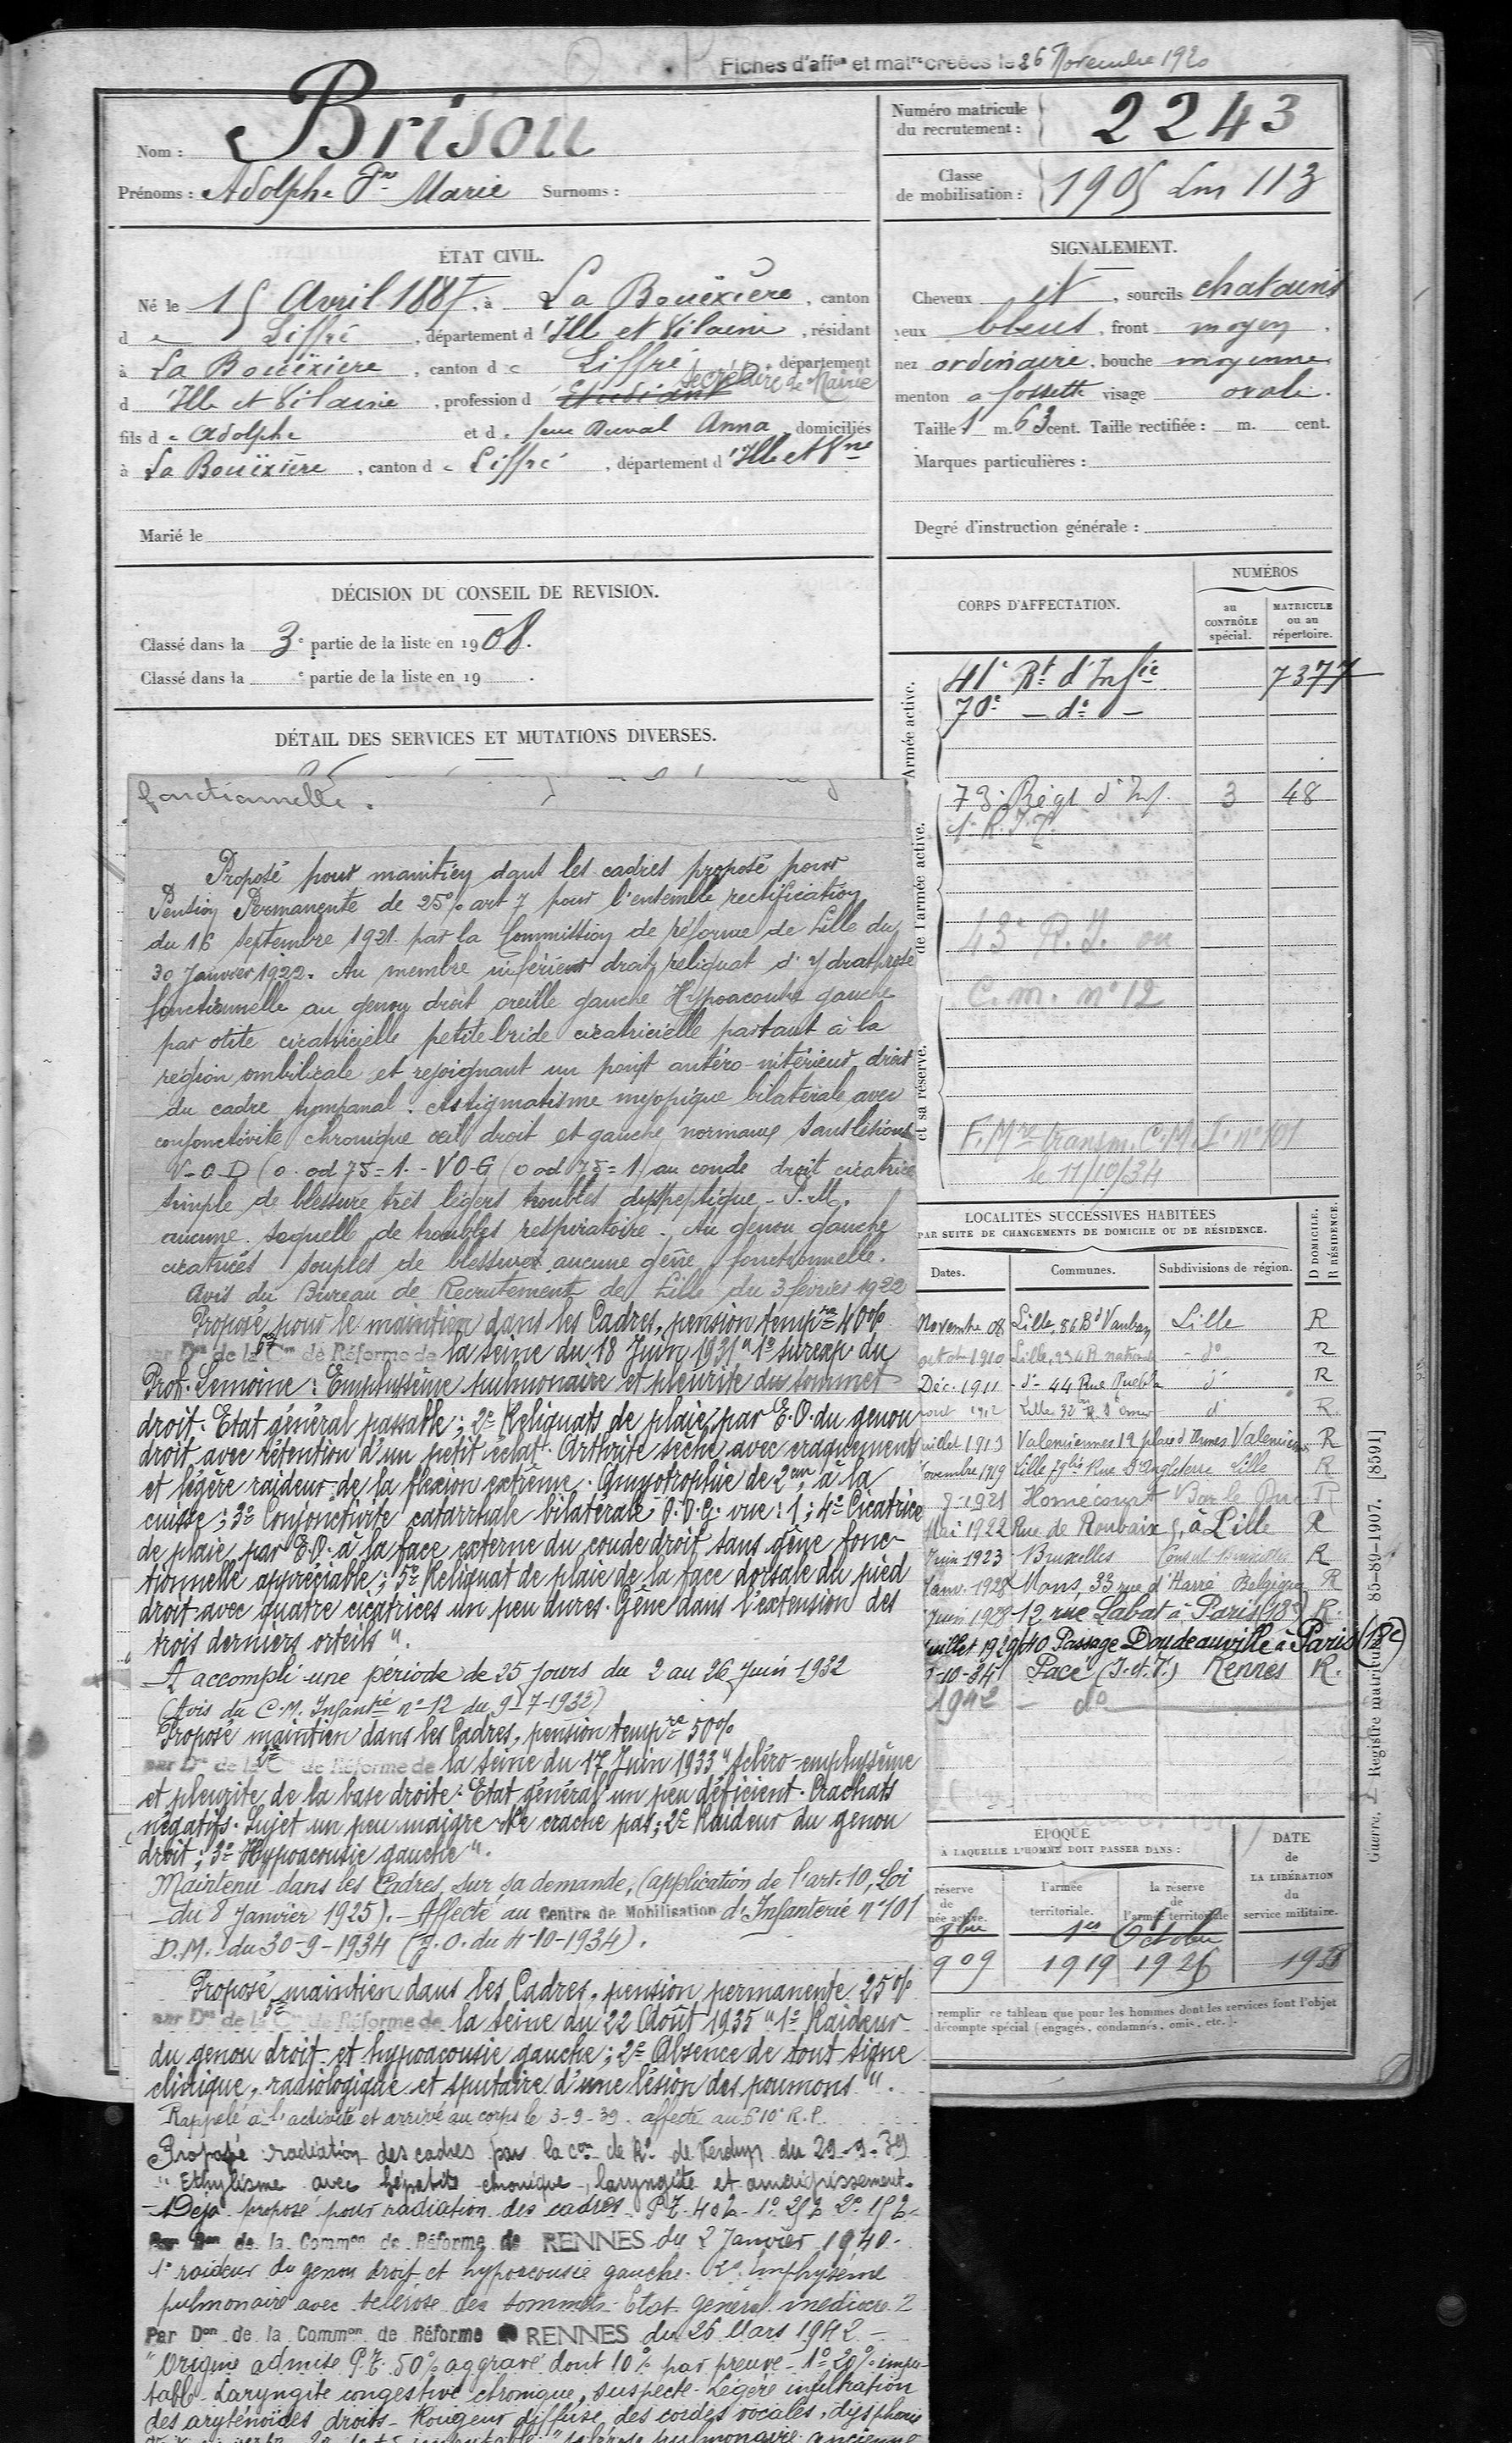 Fiches d'aff^on et mat^re créées le 26 Novembre 1920
Nom : Brisou
Prénoms : Adolphe P^re Marie Surnoms :
Numéro matricule du recrutement : 2243
Classe de mobilisation : 1905 Lm 113
ÉTAT CIVIL.
Né le 15 Avril 1887, à La Bouëxière, canton
de Liffré, département d'Ille et Vilaine, résidant
à La Bouëxière, canton de Liffré, département
d Ille et Vilaine, profession d Etudiant secrétaire de Mairie
fils de Adolphe et de feue Duval Anna, domiciliés
à La Bouëxière, canton de Liffré, département d'Ille et V^ne
Marié le
SIGNALEMENT.
Cheveux et, sourcils chatains
yeux bleus, front moyen.
nez ordinaire, bouche moyenne
menton à fossette visage ovale.
Taille 1 m. 63 cent. Taille rectifiée : m. cent.
Marques particulières :
Degré d'instruction générale :
DÉCISION DU CONSEIL DE REVISION.
Classé dans la 3^e partie de la liste en 1908.
Classé dans la ^e partie de la liste en 19 .
DÉTAIL DES SERVICES ET MUTATIONS DIVERSES.
fonctionnelle.
Proposé pour maintien dans les cadres proposé pour
Pension Permanente de 25% art 7 pour l'ensemble rectification
du 16 septembre 1921 par la Commission de réforme de Lille du
30 Janvier 1922. Au membre inférieur droit, reliquat d'ydrathrose
fonctionnelle au genou droit oreille gauche Hypoacousie gauche
par otite cicatricielle petite bride cicatricielle partant à la
région ombilicale et rejoignant un point antéro-intérieur droit
du cadre tympanal. Astigmatisme myopique bilatérale avec
conjonctivite chronique œil droit et gauche normaux sans lésions
V-O-D (0. od 75 = 1. - V O-G (0 od 75 = 1) au coude droit cicatrice
simple de blessure très légers troubles dyspeptique - P.M.
aucune sequelle de troubles respiratoire. Au genou gauche
cicatrices souples de blessures aucune gêne fonctionnelle.
Avis du Bureau de Recrutement de Lille du 3 février 1922
Proposé pour le maintien dans les Cadres, pension temp^re 40%
par D^on de la C^on de Réforme de la Seine du 18 Juin 1931 " 1° surexp. du
Prof. Lemoine : Emphysème pulmonaire et pleurite du sommet
droit. Etat général passable ; 2° Reliquats de plaie par E.O. du genou
droit avec rétention d'un petit éclat. Arthrite sèche avec craquements
et légère raideur de la flexion extrême. Amyotrophie de 2^cm à la
cuisse ; 3° Conjonctivite catarrhale bilatérale O.D.G. vue : 1 ; 4° Cicatrice
de plaie par E.O. à la face externe du coude droit sans gêne fonc-
tionnelle appréciable ; 5° Reliquat de plaie de la face dorsale du pied
droit avec quatre cicatrices un peu dures. Gêne dans l'extension des
trois derniers orteils ".
A accompli une période de 25 jours du 2 au 26 Juin 1932
(Avis du C.M. Infant^ie n° 12 du 9-7-1932)
Proposé maintien dans les Cadres, pension temp^re 50%
par D^on de la 2^e C^on de Réforme de la Seine du 17 Juin 1933 " scléro-emphysème
et pleurite de la base droite. Etat général un peu déficient. Crachats
négatifs. Sujet un peu maigre Ne crache pas ; 2° Raideur du genou
droit ; 3° Hypoacousie gauche ".
Maintenu dans les Cadres, sur sa demande, (application de l'art. 10, Loi
du 8 Janvier 1925). - Affecté au Centre de Mobilisation d'Infanterie n° 101
D.M. du 30-9-1934 (J.O. du 4-10-1934).
Proposé maintien dans les Cadres, pension permanente 25%
par D^on de la 5^e C^on de Réforme de la Seine du 22 Août 1935 " 1° Raideur
du genou droit et hypoacousie gauche ; 2° Absence de tout signe
clinique, radiologique et sputaire d'une lésion des poumons ".
Rappelé à l'activité et arrivé au corps le 3-9-39. affecté au 610^e R.P.
Proposé radiation des cadres par la c^on de R^e de Verdun du 29-9-39
" Ethylisme avec hépatite chronique, laryngite et amaigrissement.
Déjà proposé pour radiation des cadres P.T. 40% - 1° 25% 2° 15%
Par D^on de la Comm^on de Réforme de RENNES du 2 Janvier 1940.
1° raideur du genou droit et hypoacousie gauche. 2° Emphysème
pulmonaire avec sclérose des sommets. Etat général médiocre 2
Par D^on de la Comm^on de Réforme RENNES du 26 Mars 1942 -
" Origine admise P.T. 50% aggravé dont 10% par preuve - 1° 20% impu-
table - Laryngite congestive chronique, suspecte. Légère infiltration
des aryténoïdes droits - Rougeur diffuse des cordes vocales, dysphonie
CORPS D'AFFECTATION.
NUMÉROS
au CONTRÔLE spécial.
MATRICULE ou au répertoire.
Armée active.
41^e R^t d'Inf^ie 7377
70^e - d° -
de l'armée active.
73^e Régt d'Inf. 3 48
43^e R.I. ou
C.M. n° 12
et sa réserve.
F. M^re transm. C.M.I. n° 101
le 11/10/34
LOCALITÉS SUCCESSIVES HABITÉES
PAR SUITE DE CHANGEMENTS DE DOMICILE OU DE RÉSIDENCE.
Dates. Communes. Subdivisions de région. D DOMICILE. R RÉSIDENCE.
Novembre 08 Lille, 86 B^d Vauban Lille R
octobre 1910 Lille, 234 R. nationale - d° R
Déc. 1911 - d° - 44 Rue Puebla d° R
août 1912 Lille 32 R. S^t Omer d° R
Juillet 1913 Valenciennes 12 place d'Armes Valenciennes R
Novembre 1919 Lille 79 bis Rue d'Angleterre Lille R
7-1921 Homécourt Bar le Duc R
Mai 1922 Rue de Roubaix 5, à Lille R
Juin 1923 Bruxelles Consul Bruxelles R
Janv. 1928 Mons, 33 rue d'Havré Belgique R
Juin 1928 12 rue Labat à Paris (18^e) R.
Juillet 1929 40 Passage Doudeauville à Paris (18^e)
1-10-34 Pacé (I.et.V.) Rennes R.
1942 - d°
ÉPOQUE
À LAQUELLE L'HOMME DOIT PASSER DANS :
réserve de
l'armée territoriale.
la réserve de l'armée territoriale
DATE de LA LIBÉRATION du service militaire.
8bre 1er Octobre
909 1919 1926
remplir ce tableau que pour les hommes dont les services font l'objet
décompte spécial (engagés, condamnés, omis, etc.).
Guerre. Registre matricule. 85-89-1907. [8591]